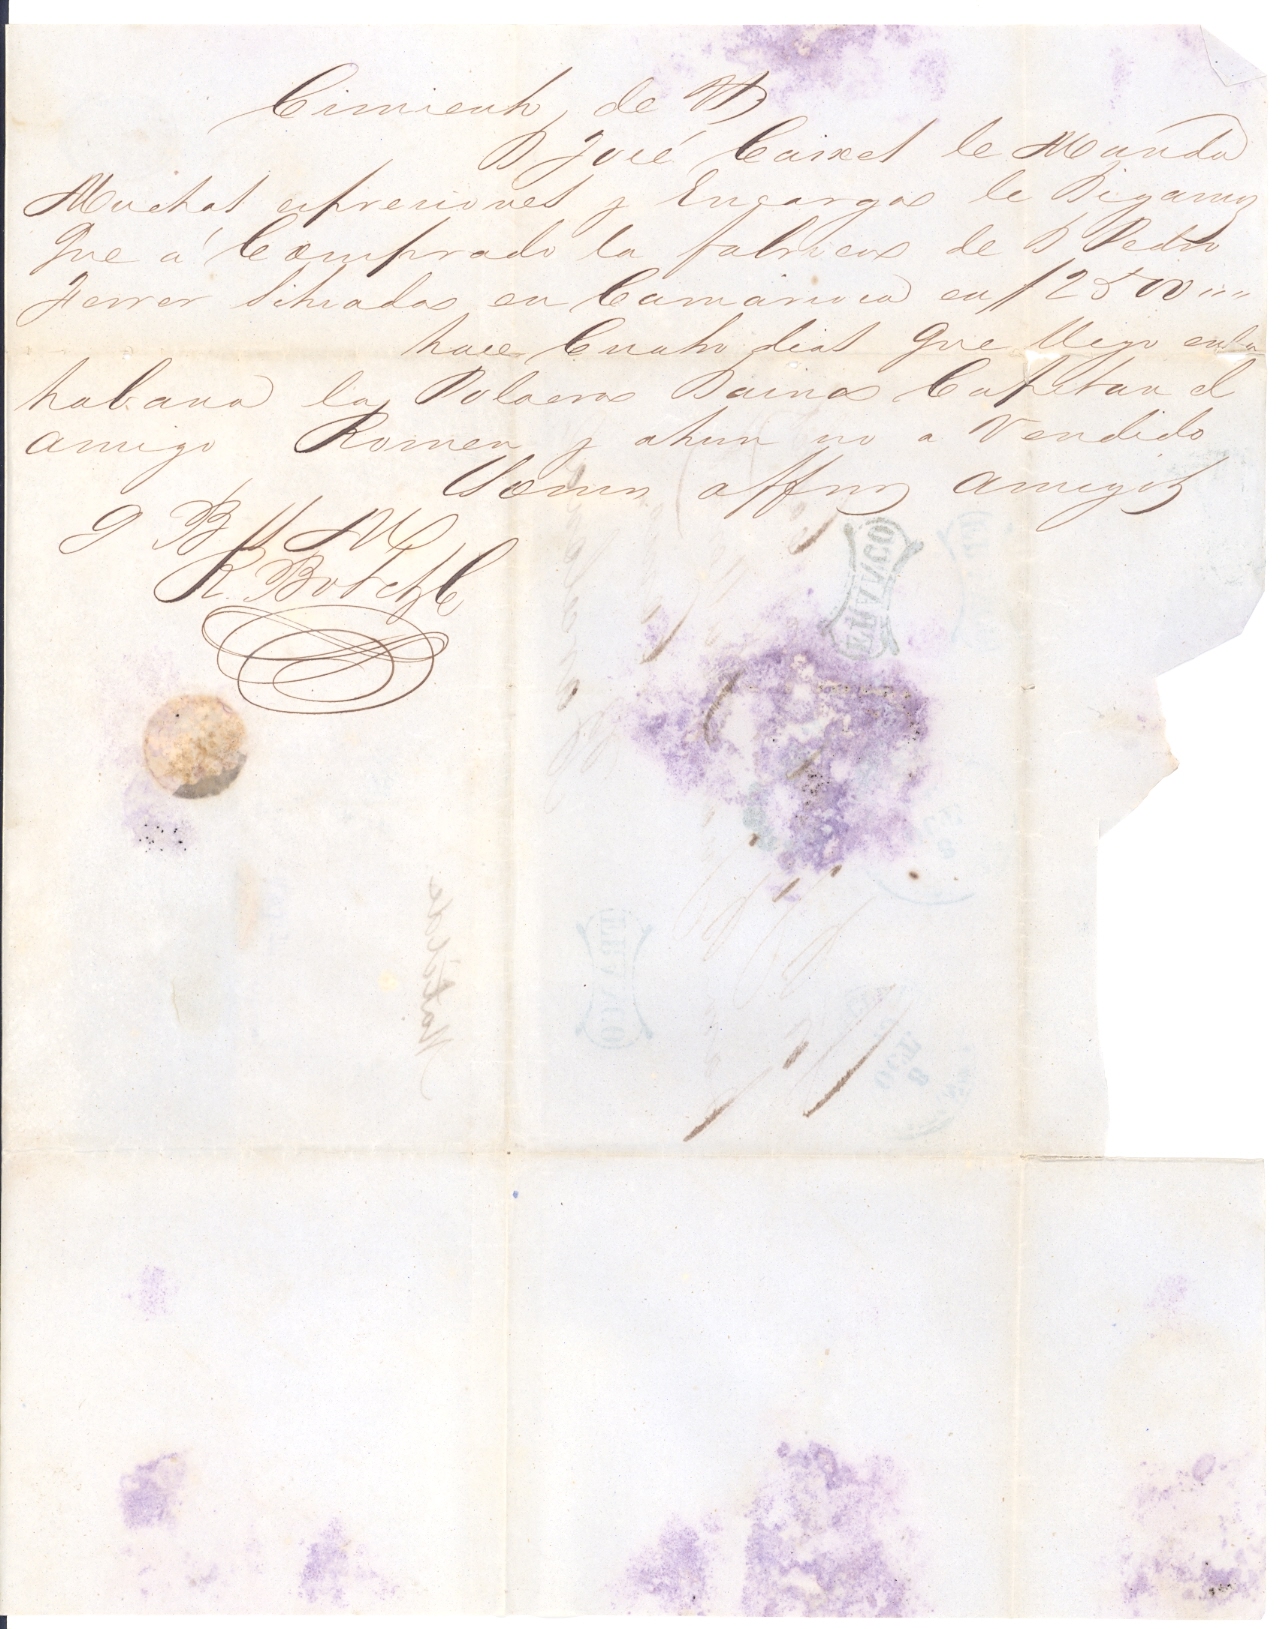 Cimiento, de V
D José Caixet le Manda
Muchas espresiones y Encargos le Digamos
Que á Comprado la fabricas de D Pedro
Ferrer Situadas en Camarioca en $ 12500
hace Cuatro dias Que llego en la
habana la Polacra Dainas Capitan el
amigo Romeu y ahun no a Vendido
Somos affmos amigos
Q B S M
R. Botet &C
FRANCO
FRANCO
8